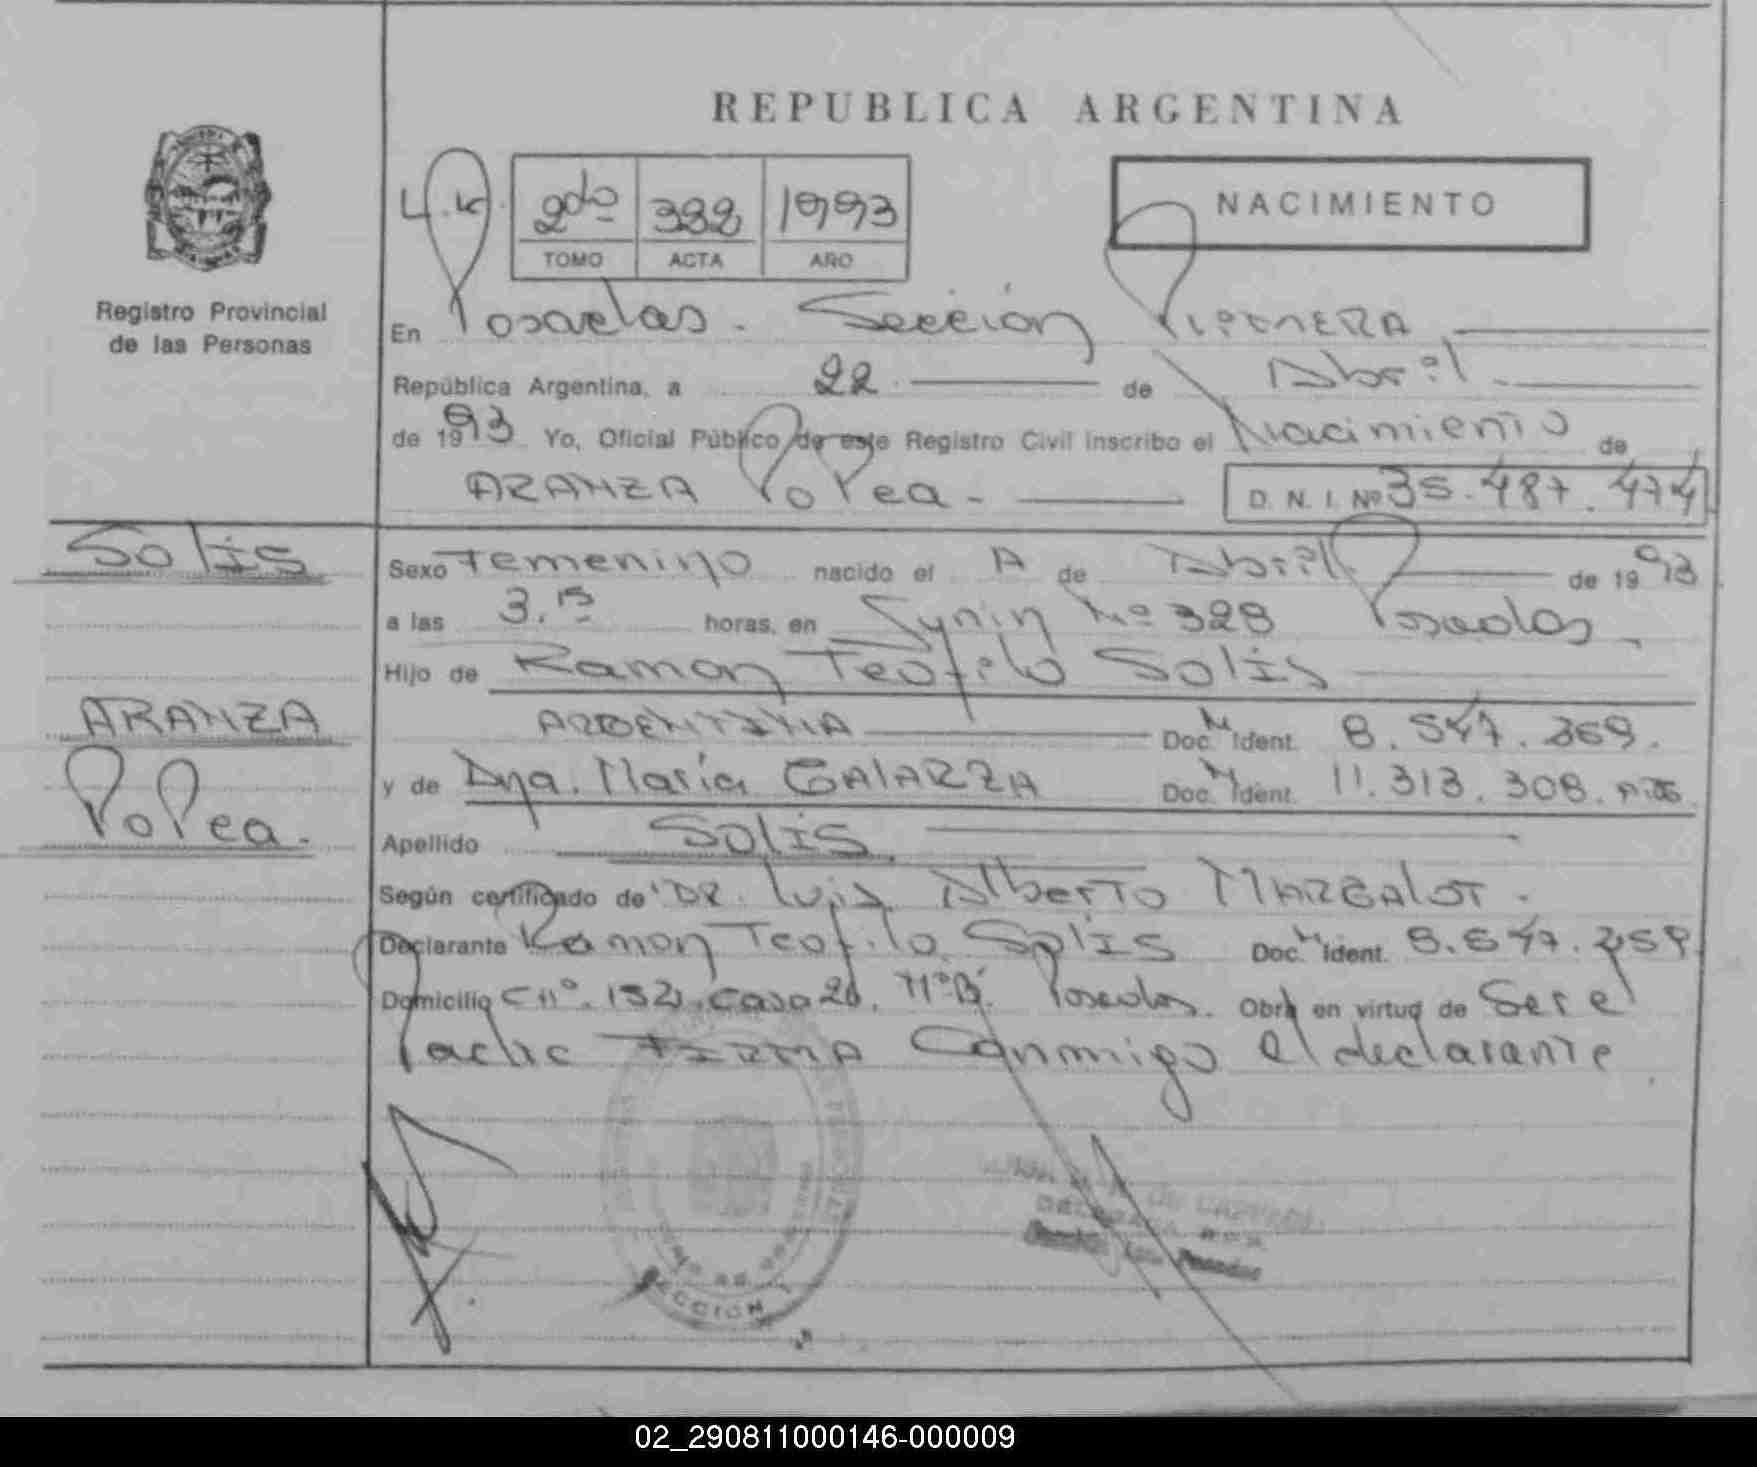 REPUBLICA ARGENTINA
2do 382 1993
TOMO ACTA AÑO
NACIMIENTO
Registro Provincial
de las Personas
En Posadas. Sección Primera
República Argentina, a 22 de Abril
de 1993 Yo, Oficial Público de este Registro Civil inscribo el Nacimiento de
ARANZA PoPea - D. N. I. Nº 35.487.474
SolIS
Sexo Femenino nacido el de Abril de 1993
a las 3.15 horas, en Nº 328 Posadas.
Hijo de Ramon Teofilo SolIS
ARANZA
PoPea.
ARGENTINA Doc. Ident. 8.547.369.
y de Dña. María GAlARZA Doc. Ident. 11.313.308.
Apellido SolIS.
Según certificado de DR. Luis Alberto
Declarante Ramon Teofilo SolIS Doc. Ident.
Domicilio casa Posadas. Obra en virtud de Ser el
Padre FIRMA Conmigo el declarante
SECCION
02_290811000146-000009